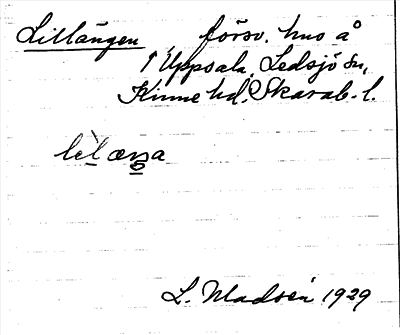 Lillängen försv. hus å
↑ Uppsala, Ledsjö sn,
Kinne hd, Skarab. l.
L. Madsén 1929